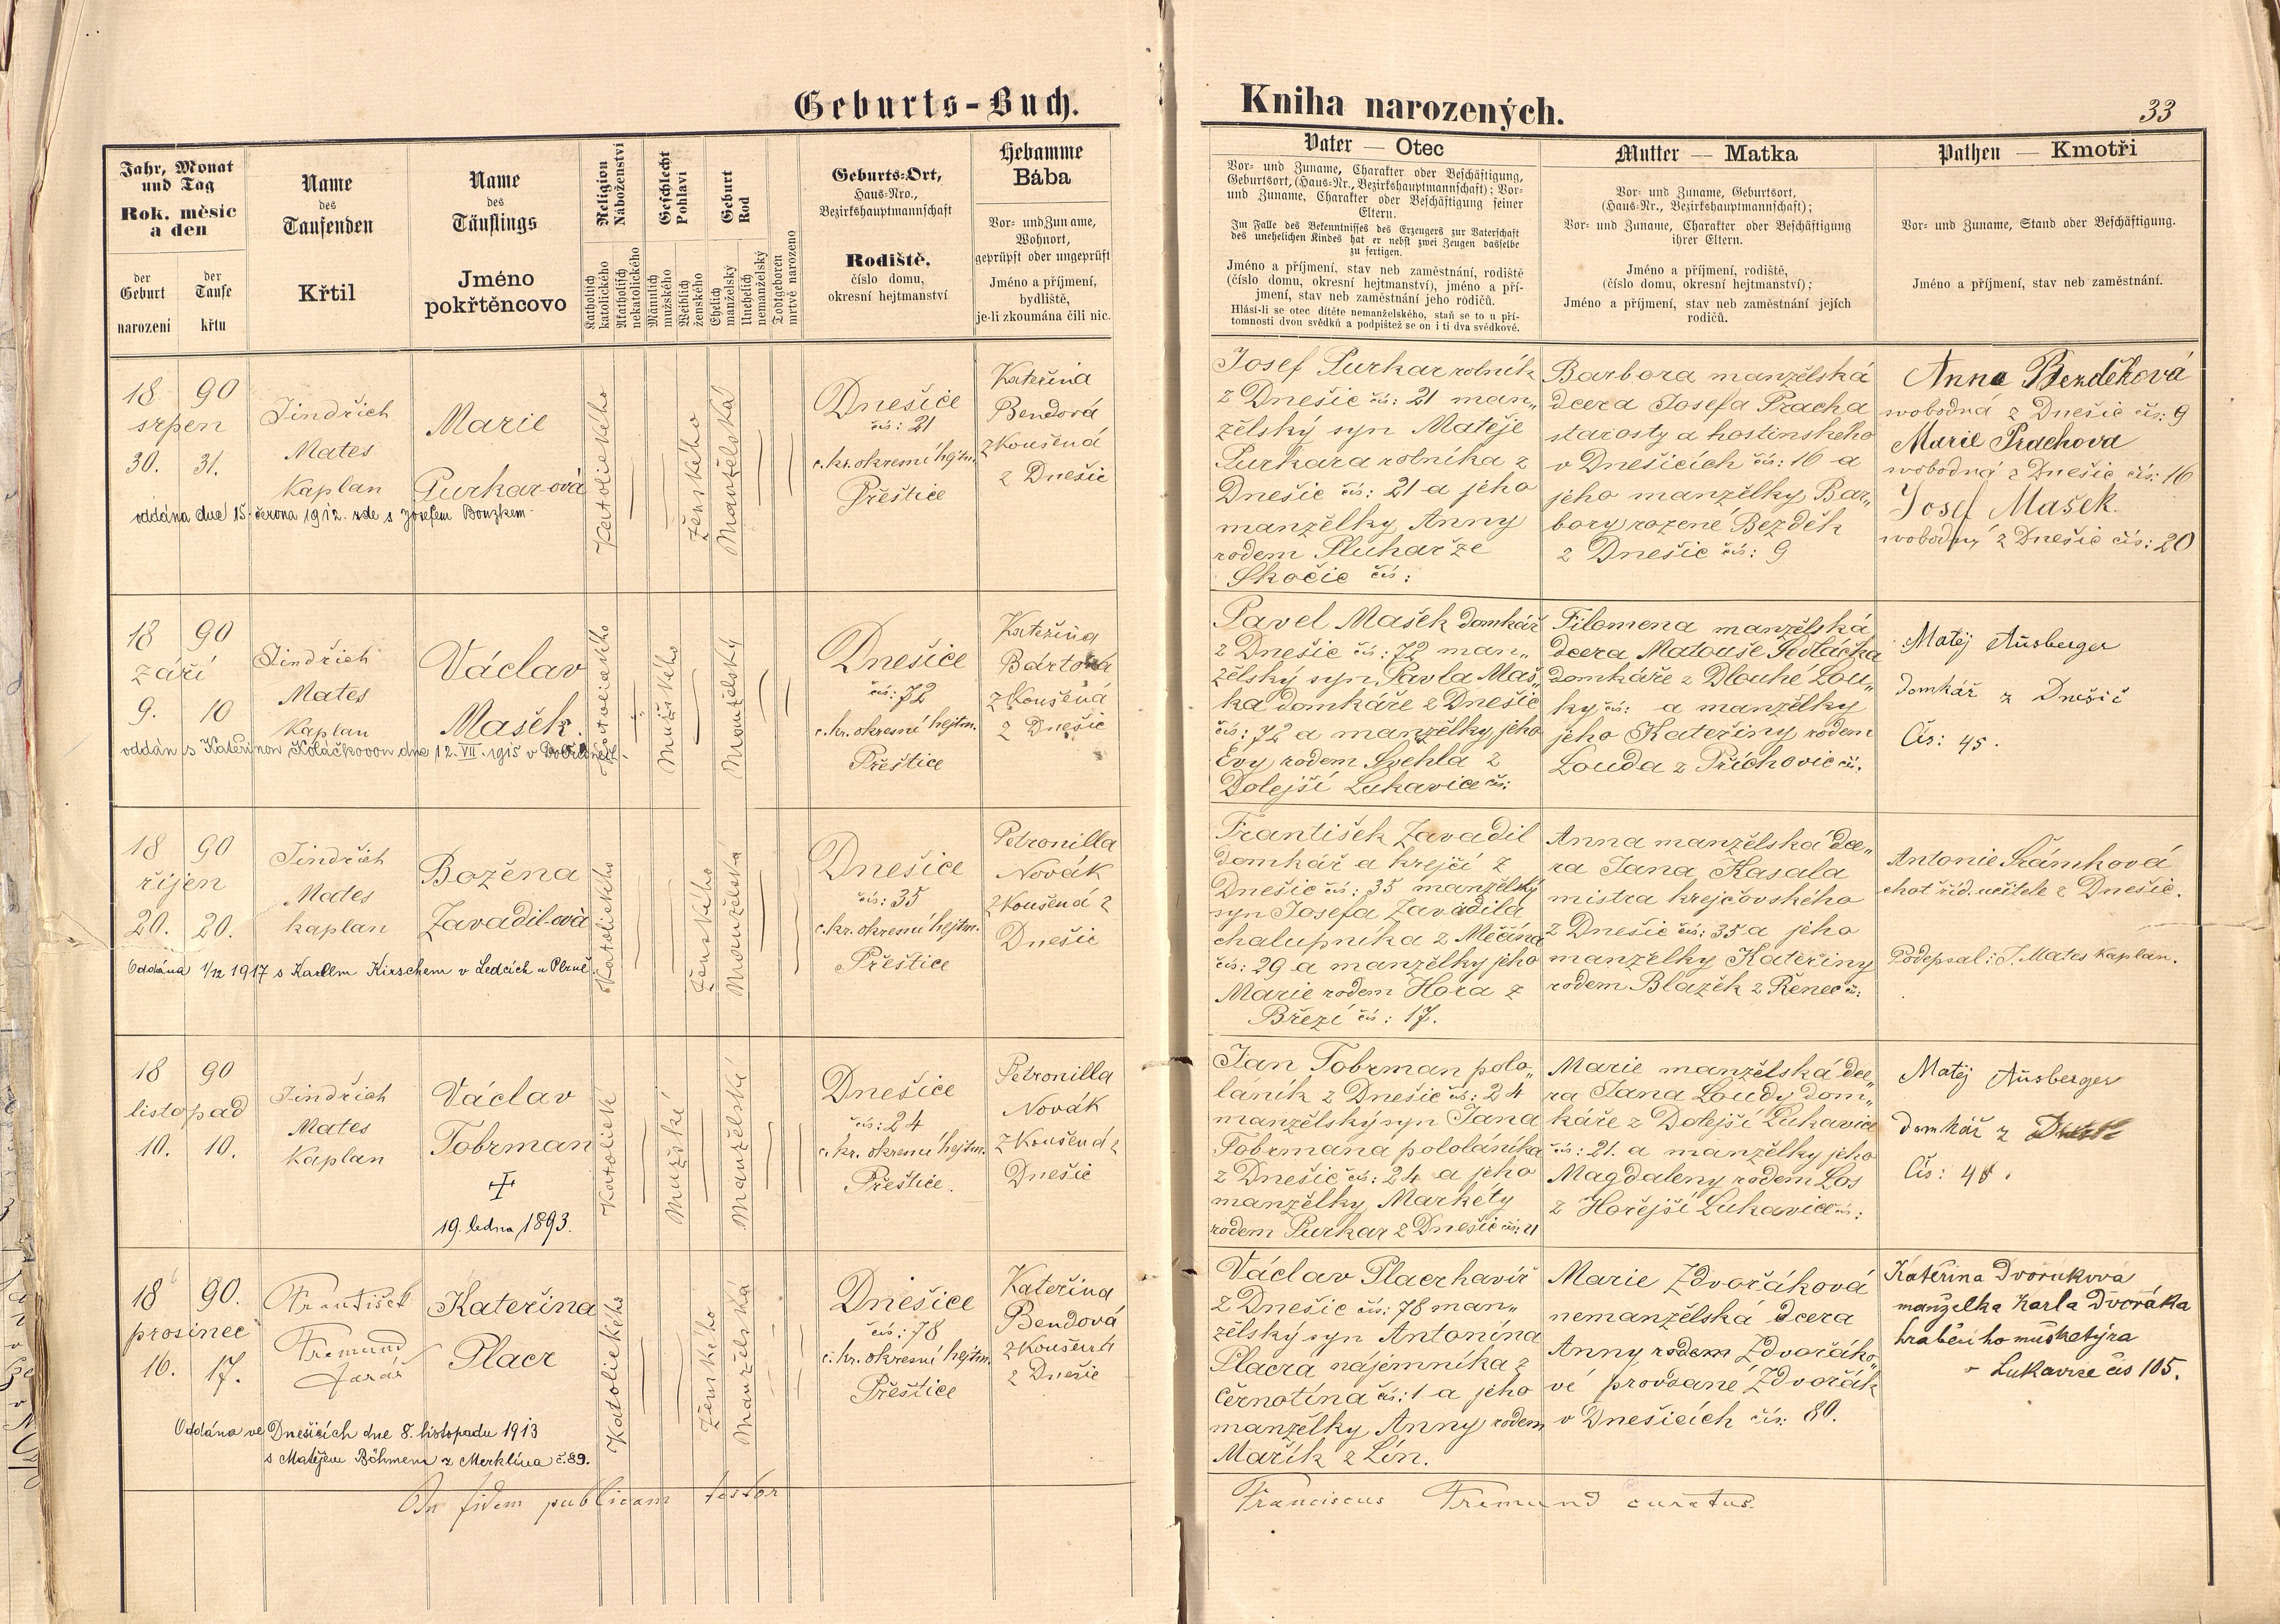 Geburts-Buch.
Kniha narozených.
33
Jahr, Monat
und Tag
Rok. měsíc
a den
der
Geburt
narození
der
Taufe
křtu
Name
des
Taufenden
Křtil
Name
des
Täuflings
Jméno
pokřtěncovo
Religion
Náboženství
Katholisch
katolického
Akatholisch
nekatolického
Geschlecht
Pohlaví
Männlich
mužského
Weiblich
ženského
Geburt
Rod
Ehelich
manželský
Unehelich
nemanželský
Todtgeboren
mrtvě narozeno
Geburts-Ort,
Haus-Nro.,
Bezirkshauptmannschaft
Rodiště,
číslo domu,
okresní hejtmanství
Hebamme
Bába
Vor- und Zuname,
Wohnort,
geprüpft oder ungeprüft
Jméno a příjmení,
bydliště,
je-li zkoumána čili nic.
Vater — Otec
Vor- und Zuname, Charakter oder Beschäftigung,
Geburtsort, (Haus-Nr., Bezirkshauptmannschaft); Vor-
und Zuname, Charakter oder Beschäftigung seiner
Eltern.
Im Falle des Bekenntnisses des Erzeugers zur Vaterschaft
des unehelichen Kindes hat er nebst zwei Zeugen dasselbe
zu fertigen.
Jméno a příjmení, stav neb zaměstnání, rodiště
(číslo domu, okresní hejtmanství), jméno a pří-
jmení, stav neb zaměstnání jeho rodičů.
Hlásí-li se otec dítěte nemanželského, staň se to u pří-
tomnosti dvou svědků a podpištež se on i ti dva svědkové.
Mutter — Matka
Vor- und Zuname, Geburtsort,
(Haus-Nr., Bezirkshauptmannschaft);
Vor- und Zuname, Charakter oder Beschäftigung
ihrer Eltern.
Jméno a příjmení, rodiště,
(číslo domu, okresní hejtmanství);
Jméno a příjmení, stav neb zaměstnání jejích
rodičů.
Pathen — Kmotři
Vor- und Zuname, Stand oder Beschäftigung.
Jméno a příjmení, stav neb zaměstnání.
18 90
srpen
30. 31.
Jindřich
Mates
Kaplan
Marie
Purkar-ová
oddána dne 15. června 1912. zde s Josefem Bouzkem
Katolického
Ženského
Manželská
Dnešice
čís: 21
c. kr. okresní hejtm.
Přeštice
Kateřina
Bendová
zkoušená
z Dnešic
Josef Purkar rolník
z Dnešic čís: 21 man„
želský syn Matěje
Purkara rolníka z
Dnešic čís: 21 a jeho
manželky Anny
rodem Pluhař ze
Skočic čís:
Barbora manželská
dcera Josefa Pracha
starosty a hostinského
v Dnešicích čís: 16 a
jeho manželky Bar„
bory rozené Bezděk
z Dnešic čís: 9
Anna Bezděková
svobodná z Dnešic čís: 9
Marie Prachova
svobodná z Dnešic čís: 16
Josef Mašek.
svobodný z Dnešic čís: 20
18 90
září
9. 10
Jindřich
Mates
Kaplan
Václav
Mašek.
oddán s Kateřinou Koláčkovou dne 12. VII. 1915 v
Katolického
Mužského
Manželský
Dnešice
čís: 72
c. kr. okresní hejtm.
Přeštice
Kateřina
Bártová
zkoušená
z Dnešic
Pavel Mašek domkář
z Dnešic čís: 72 man„
želský syn Pavla Maš„
ka domkáře z Dnešic
čís: 72 a manželky jeho
Evy rodem Švehla z
Dolejší Lukavice čís:
Filomena manželská
dcera Matouše Sedláčka
domkáře z Dlouhé Lou„
ky čís: a manželky
jeho Kateřiny rodem
Louda z Příchovic čís.
Matěj Ausberger
domkář z Dnešic
Čís: 45.
18 90
říjen
20. 20.
Jindřich
Mates
kaplan
Božena
Zavadil-ová
Oddána 1/12 1917 s Karlem Kirschem v Ledcích u Plzně
Katolického
Ženského
Manželská
Dnešice
čís: 35
c. kr. okresní hejtm.
Přeštice
Petronilla
Novák
zkoušená z
Dnešic
František Zavadil
domkář a krejčí z
Dnešic čís: 35 manželský
syn Josefa Zavadila
chalupníka z Měčína
čís: 29 a manželky jeho
Marie rodem Hora z
Březí čís: 17.
Anna manželská dce„
ra Jana Kasala
mistra krejčovského
z Dnešic čís: 35 a jeho
manželky Kateřiny
rodem Blažek z Řenec čís:
Antonie Šrámková
choť říd. učitele z Dnešic.
Podepsal: J. Mates kaplan.
18 90
listopad
10. 10.
Jindřich
Mates
Kaplan
Václav
Tobrman
19. ledna 1893.
Katolické
Mužské
Manželské
Dnešice
čís: 24
c. kr. okresní hejtm.
Přeštice.
Petronilla
Novák
zkoušená z
Dnešic
Jan Tobrman polo„
láník z Dnešic čís: 24
manželský syn Jana
Tobrmana pololáníka
z Dnešic čís: 24 a jeho
manželky Markéty
rodem Purkar z Dnešic čís: 21
Marie manželská dce„
ra Jana Loudy dom„
káře z Dolejší Lukavice
čís: 21. a manželky jeho
Magdaleny rodem Los
z Hořejší Lukavice čís:
Matěj Ausberger
domkář z
Čís: 45.
18 90.
prosinec
16. 17.
František
Fremund
farář
Kateřina
Placr
Oddána ve Dnešicích dne 8. listopadu 1913
s Matějem Böhmem z Merklína č. 89.
Katolického
Ženského
Manželská
Dnešice
čís: 78
c. kr. okresní hejtm.
Přeštice
Kateřina
Bendová
zkoušená
z Dnešic
Václav Placr havíř
z Dnešic čís: 78 man„
želský syn Antonína
Placra nájemníka z
Černotína čís: 1 a jeho
manželky Anny rodem
Mařík z Lín.
Marie Zdvořáková
nemanželská dcera
Anny rodem Zdvořáko„
vé provdané Zdvořák
v Dnešicích čís: 80.
Kateřina Dvořáková
manželka Karla Dvořáka
hraběcího mušketýra
v Lukavice čís 105.
In fidem publicam testor
Franciscus Fremund curatus.